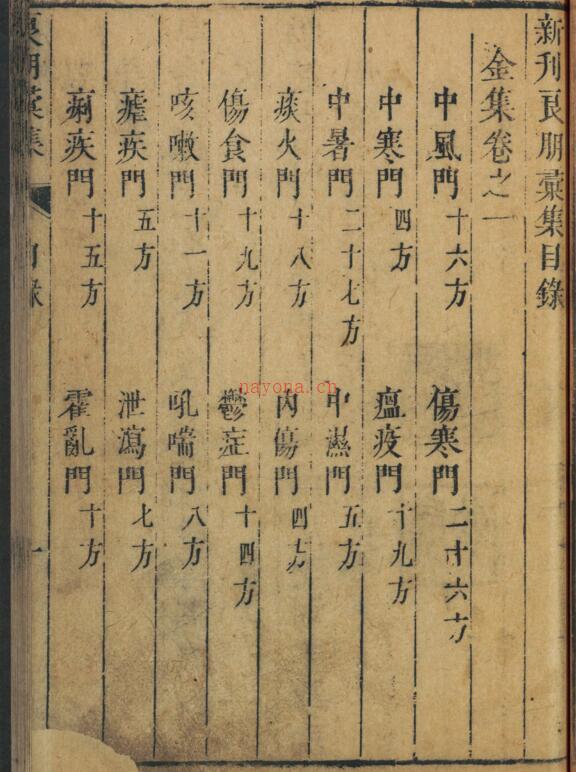 新刊良朋彙集目錄
金集卷之一
中風門十六方 傷寒門二十六方
中寒門四方 瘟疫門十九方
中暑門二十七方 中濕門五方
痰火門十八方 內傷門四方
傷食門十九方 鬱症門十四方
咳嗽門十一方 吼喘門八方
瘧疾門五方 泄瀉門七方
痢疾門十五方 霍亂門十方
良朋彙集 目錄 一
nayona.cn